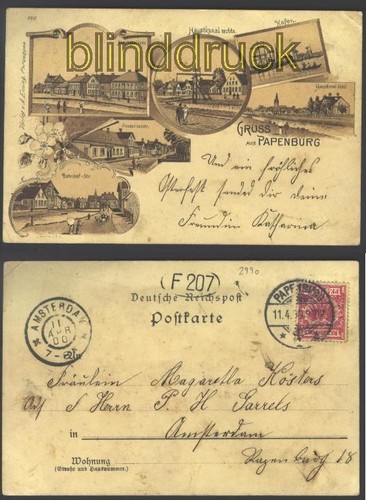 blinddruck
Hauptkanal rechts
Hafen.
Hauptkanal links
Bahnhof-Str.
GRUSS
AUS PAPENBURG
Und ein fröhliches
Osterfest sendet dir deine
Freundin Katharina
(F 207)
2990
Deutsche Reichspost
Postkarte
AMSTERDAM
11
APR
00
PAPENBURG
11.4.
Fräulein Magaretha Kösters
Adr. S Herrn P. H Sarrels
in Amsterdam
Wohnung
(Straße und Hausnummer)
18